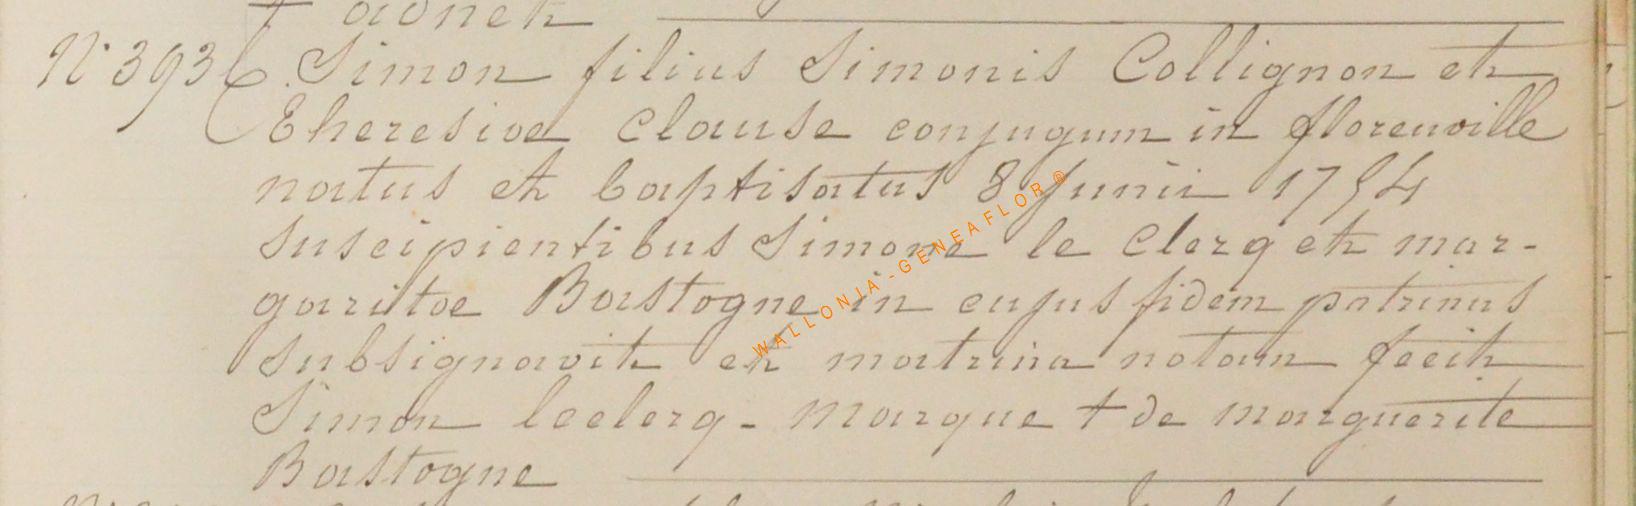 N° 393 Simon filius Simonis Collignon et
Theresiae Clause conjugum in florenville
natus et baptisatus 8 Junii 1754
suscipientibus Simone le Clerq et mar-
garitae Bastogne in cujus fidem patrinus
subsignavit et matrina notam fecit
Simon leclerq - marque + de marguerite
Bastogne
WALLONIA-GENEAFLOR®